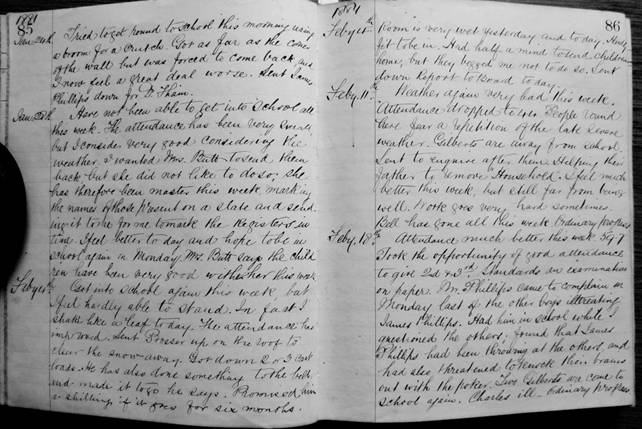 1881
85
Jan 24th Tried to get round to School this morning using
a broom for a crutch. Got as far as the corner
of the wall but was forced to come back and
I now feel a great deal worse. Sent James
Phillips down for Dr Thain.
Jan 28th Have not been able to get into School all
this week. The attendance has been very small
but I consider very good considering the
weather. I wanted Mrs. Butt to send them
back but she did not like to do so; she
has therefore been master this week, marking
the names of those present on a slate and send
ing it to be for me to mark the Registers in
time. I feel better to day and hope to be in
school again on Monday. Mrs. Butt says the child
ren have been very good with her this week.
Feby 4th Got into school again this week but
feel hardly able to stand. In fact I
shake like a leaf to day. The attendance has
improved. Sent Prosser up on the roof to
clear the snow away. Got down 2 or 3 cart
loads. He has also done something to the bell
and made it to go he says. Promised him
a shilling if it goes for six months.
1881
86
Feby 4th Room is very wet yesterday and to day. Hardly
fit to be in. Had half a mind to send children
home, but they begged me not to do so. Sent
down Report to Board to day.
Feby. 11th Weather again very bad this week.
Attendance dropped to lower. People round
here fear a repetition of the late severe
weather. Gilberts are away from school.
Sent to enquire after them. Helping their
father to remove "Household". I feel much
better this week, but still far from being
well. Work goes very hard sometimes.
Bell has gone all this week. Ordinary progress
Feby. 18th Attendance much better this week 59.7
Took the opportunity of good attendance
to give 2d & 3rd Standards an examination
on paper. Mr. Phillips came to complain on
Monday last of the other boys illtreating
James Phillips. Had him in school while I
questioned the others. Found that James
Phillips had been throwing at the others and
had also threatened to knock their brains
out with the poker. Two Gilberts are come to
school again. Charles ill - ordinary progress